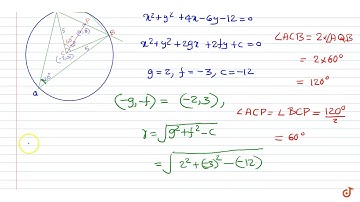 x²+y²+4x-6y-12=0
x²+y²+2gx+2fy+c=0
g=2, f=-3, c=-12
(-g,-f) = (-2,3),
r=√g²+f²-c
=√2²+(-3)²-(-12)
∠ACB=2x∠AQB
=2x60°
=120°
∠ACP=∠BCP=120°/2
=60°
5
5
Q